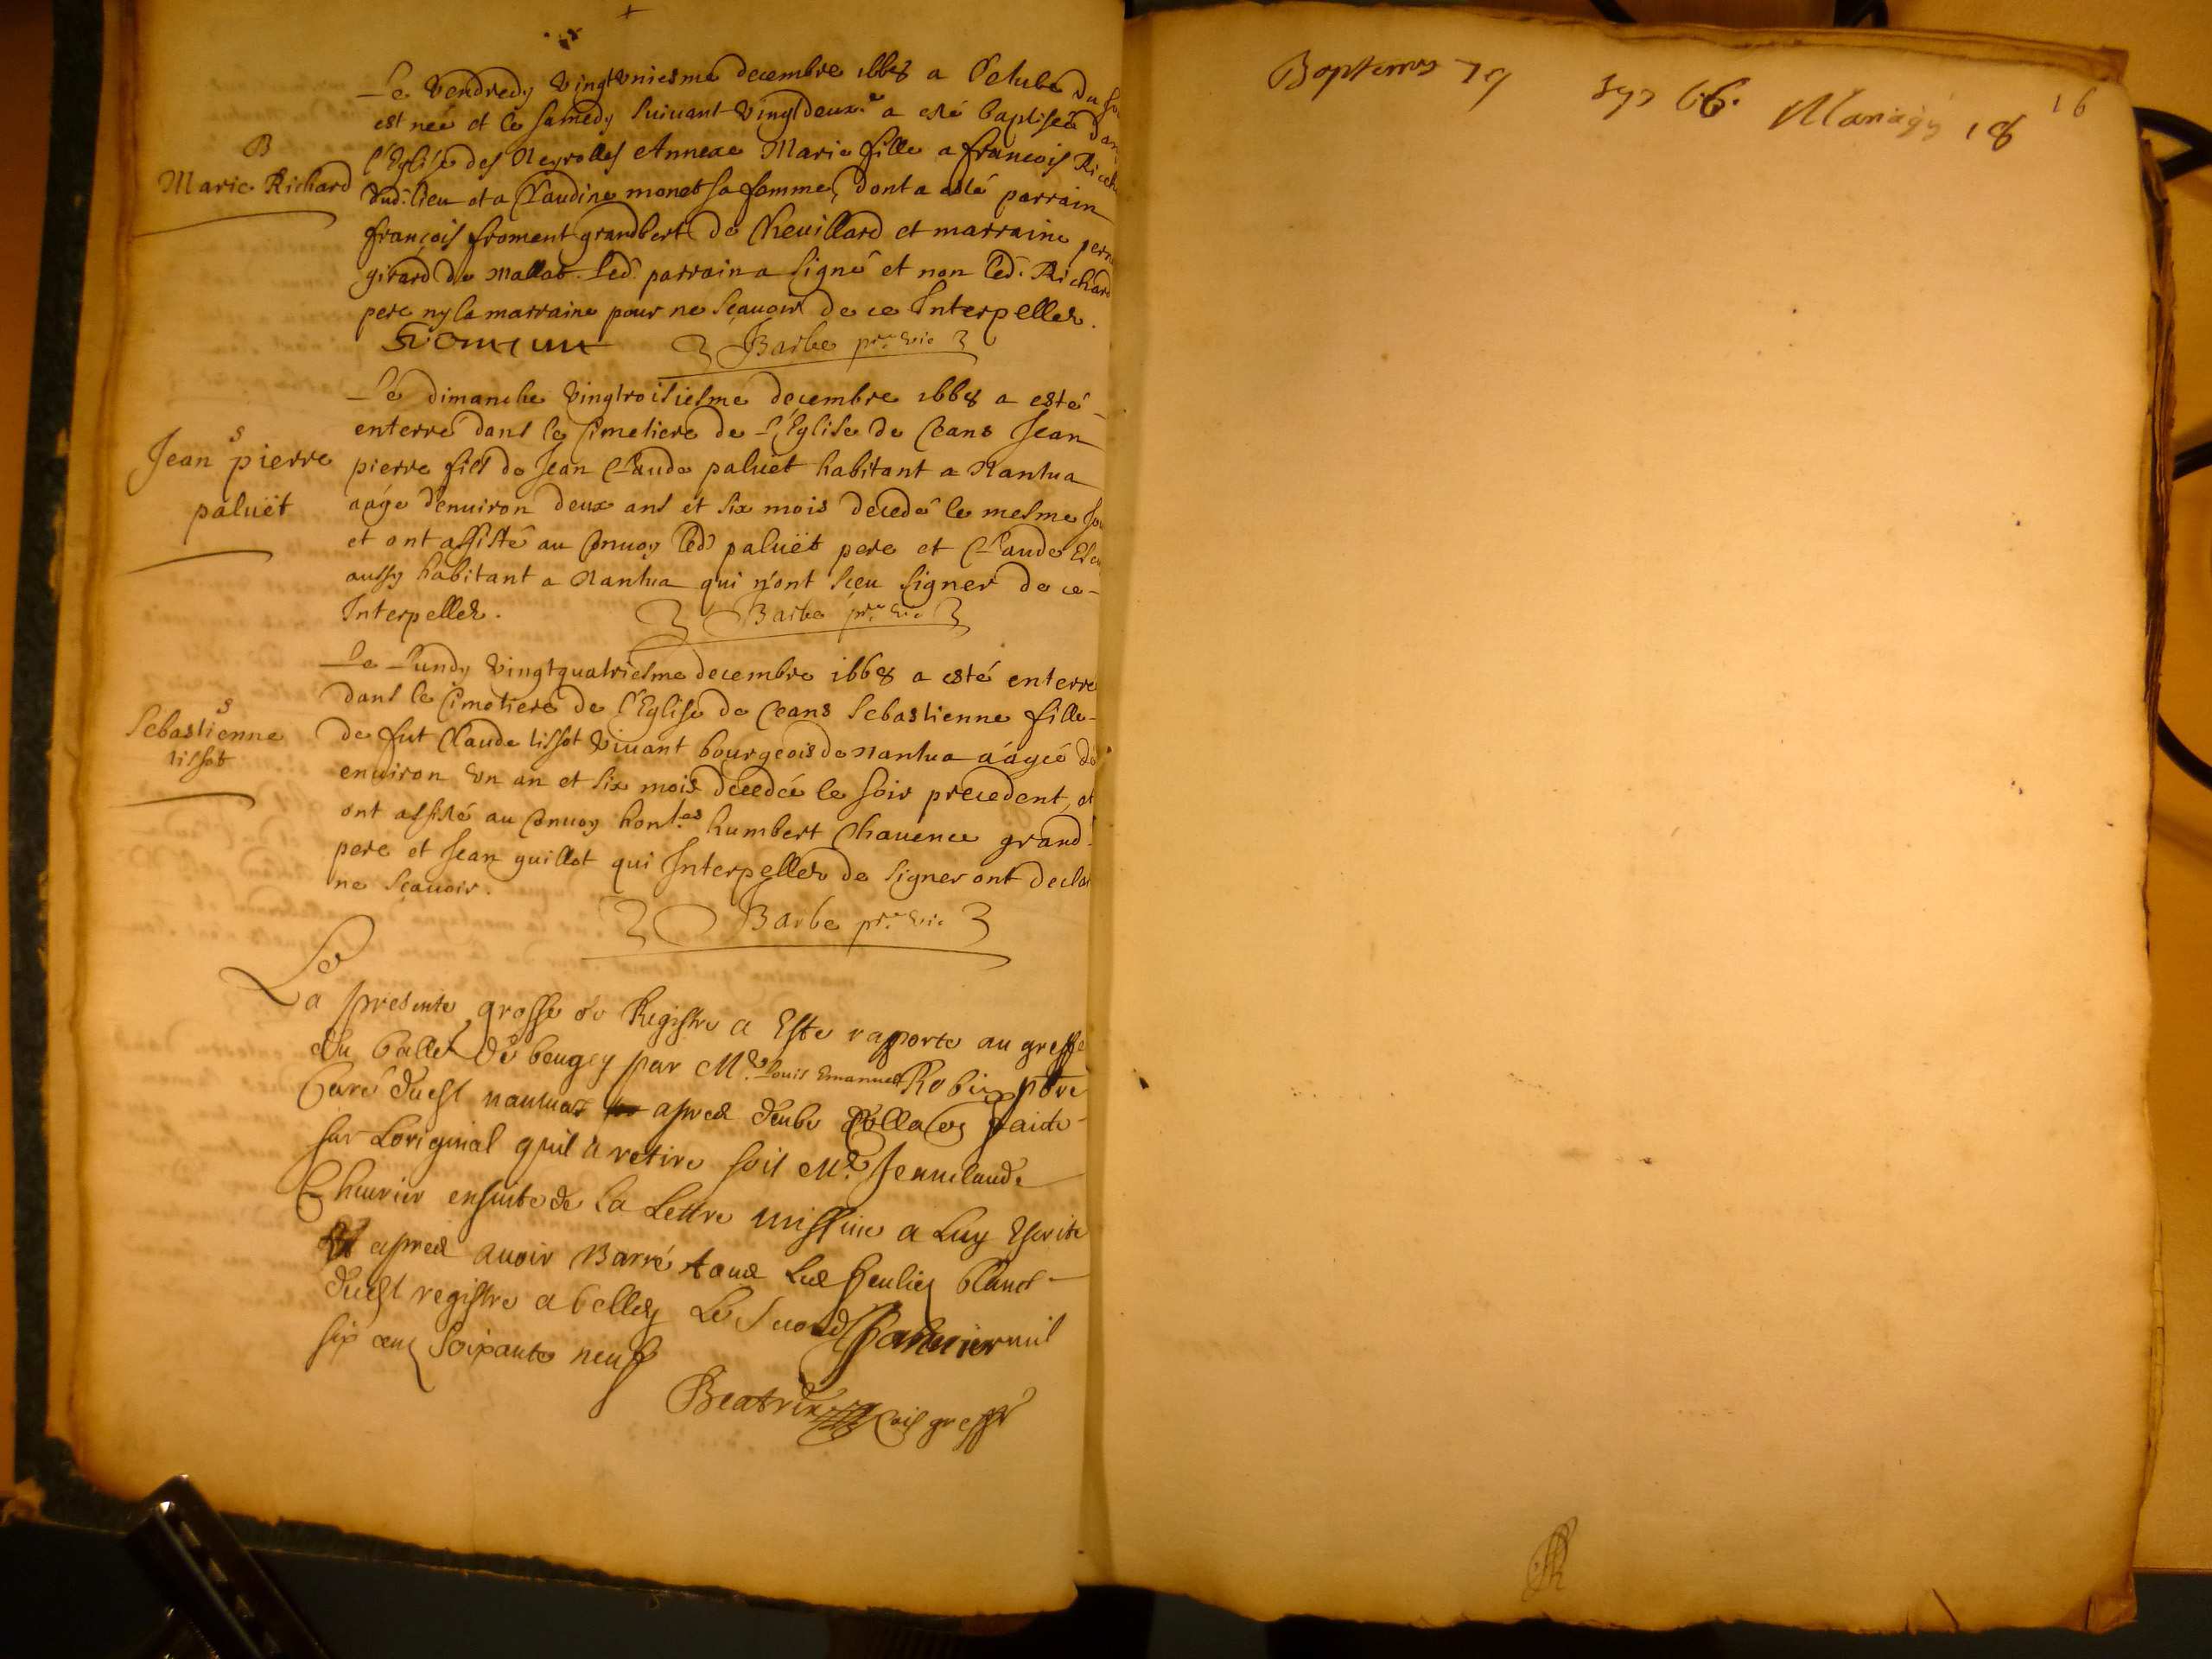 B
Marie Richard
Le Vendredy vingtuniesme decembre 1668 a l'
est neé et le samedy suivant vingtdeux.e a esté baptiseé dan
l'Eglise des Neyrolles Annexe Marie fille a francois Rich
dud. lieu et a Claudine monet sa femme, dont a esté parrain
françois froment grandbert de Cheuillard et marraine pern
girard de Mallat. Led. parrain a signé et non led. Richard
pere ny la marraine pour ne sçauoir de ce Interpellez.
Froment Barbe pr.e vic
S
Jean pierre
paluët
Le dimanche vingtroisiesme decembre 1668 a esté
enterré dans le Cimetiere de l'Eglise de Ceans Jean
pierre fils de Jean Claude paluët habitant a Nantua
aagé d'enuiron deux ans et six mois decedé le mesme Jou
et ont assisté au Conuoy led. paluët pere et Claude
aussy habitant a Nantua qui n'ont sceu signer de ce
Interpellez. Barbe pr.e vic
S
Sebastienne
tissot
Le Lundy vingtquatriesme decembre 1668 a esté enterre
dans le Cimetiere de l'Eglise de Ceans Sebastienne fille
de fut Claude tissot viuant bourgeois de Nantua aágeé d
enuiron vn an et six mois decedeé le soir precedent, et
ont assisté au Conuoy hon.les humbert Chauence grand
pere et Jean guillot qui Interpellez de signer ont decla
ne sçauoir.
Barbe pr.e vic
La presente grosse de Registre a Este raporte au greffe
du balle de beugey par M.e Louis Emanuel Robin pbre
Curé dudt nantua apres deube Colla.on faite
sur Loriginal quil a retire soit M.e Jean claude
Cheurier ensuite de la Lettre missiue a Luy Escrite
Et apres auoir Barré tous Les feulies blanct
dudt registre a belley Le Second Januier mil
six cens soixante neuf
Beatrix greffr
Baptemes 79 sep 66. Mariages 18 16